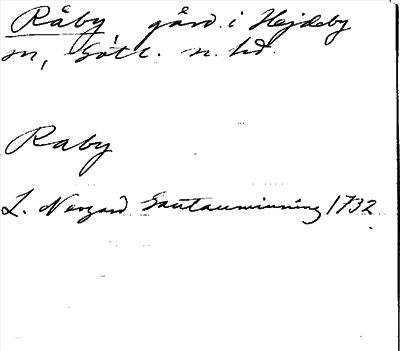 Råby gård i Hejdeby
sn, Gotl. n. hd.
Raby
L. Norgard Gautauminning 1732